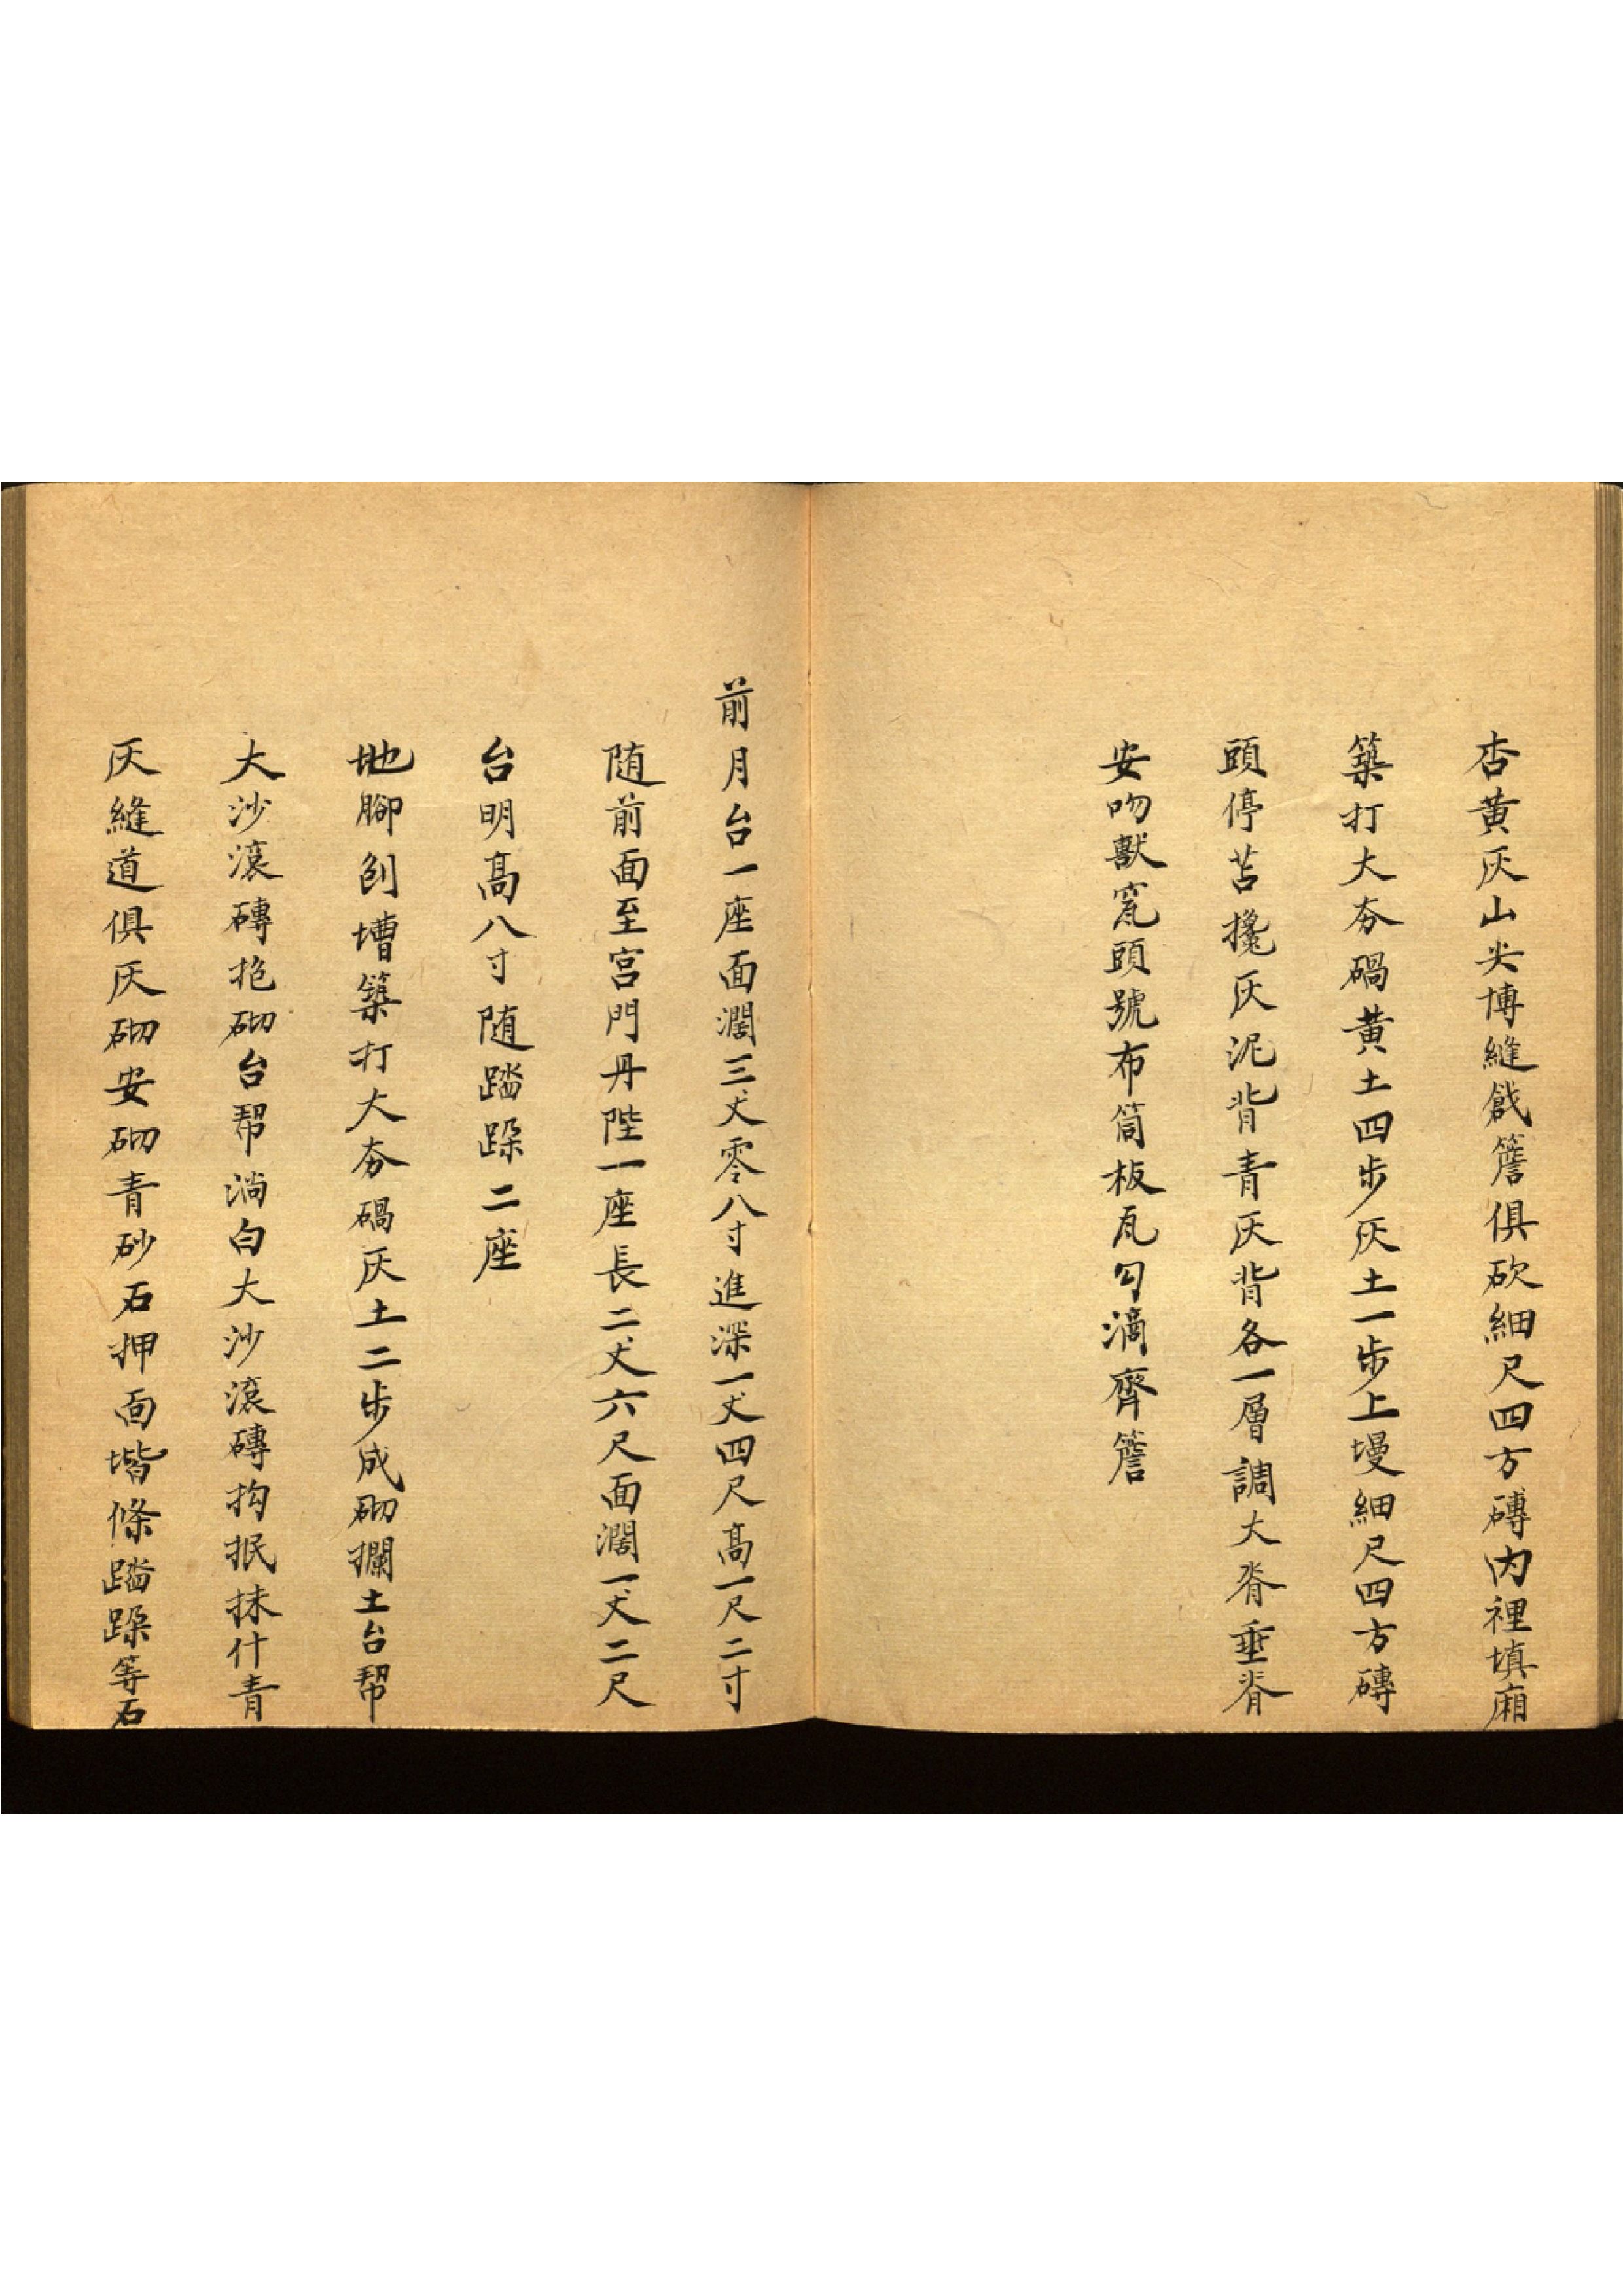 杏黄灰山尖博縫戧簷俱砍細尺四方磚內裡填廂
築打大夯碢黄土四步灰土一步上墁細尺四方磚
頭停苫攙灰泥背青灰背各一層調大脊垂脊
安吻獸窊頭號布筒板瓦勾滴齊簷
前月台一座面濶三丈零八寸進深一丈四尺高一尺二寸
随前面至宮門丹陛一座長二丈六尺面濶一丈二尺
台明高八寸随踏跺二座
地腳刨墻築打大夯碢灰土二步成砌攔土台帮
大沙滚磚抱砌台帮淌白大沙滚磚抅抿抹什青
灰縫道俱灰砌安砌青砂石押面堦條踏跺等石